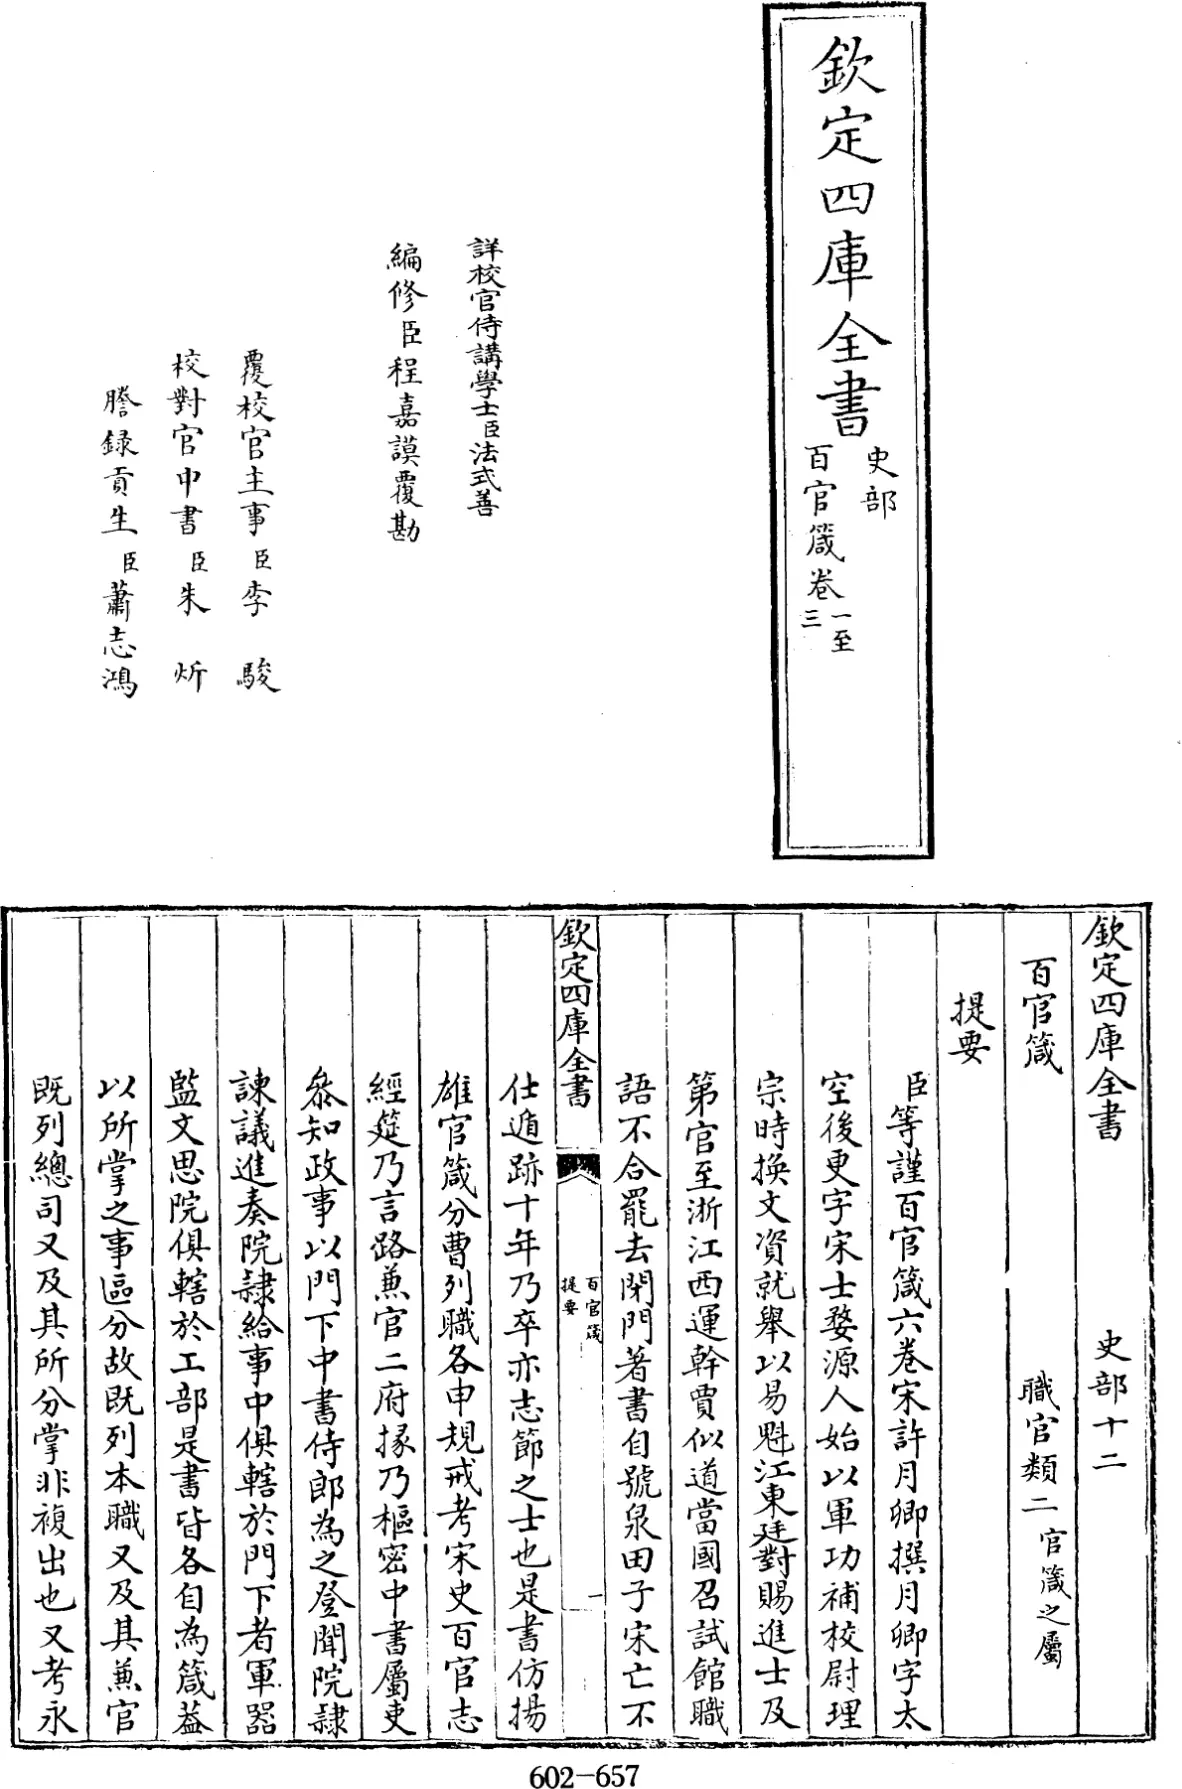 欽定四庫全書
史部
百官箴卷一至三
詳校官侍講學士臣法式善
編修臣程嘉謨覆勘
覆校官主事臣李駿
校對官中書臣朱炘
謄録貢生臣蕭志鴻
欽定四庫全書 史部十二
百官箴 職官類二官箴之屬
提要
臣等謹百官箴六卷宋許月卿撰月卿字太
空後更字宋士婺源人始以軍功補校尉理
宗時換文資就舉以易魁江東廷對賜進士及
第官至浙江西運幹賈似道當國召試館職
語不合罷去閉門著書自號泉田子宋亡不
欽定四庫全書
百官箴
提要
一
仕遁跡十年乃卒亦志節之士也是書仿揚
雄官箴分曹列職各申規戒考宋史百官志
經筵乃言路兼官二府掾乃樞密中書屬吏
叅知政事以門下中書侍郎為之登聞院隷
諌議進奏院隷給事中俱轄於門下者軍器
監文思院俱轄於工部是書皆各自為箴葢
以所掌之事區分故既列本職又及其兼官
既列總司又及其所分掌非複出也又考永
602-657